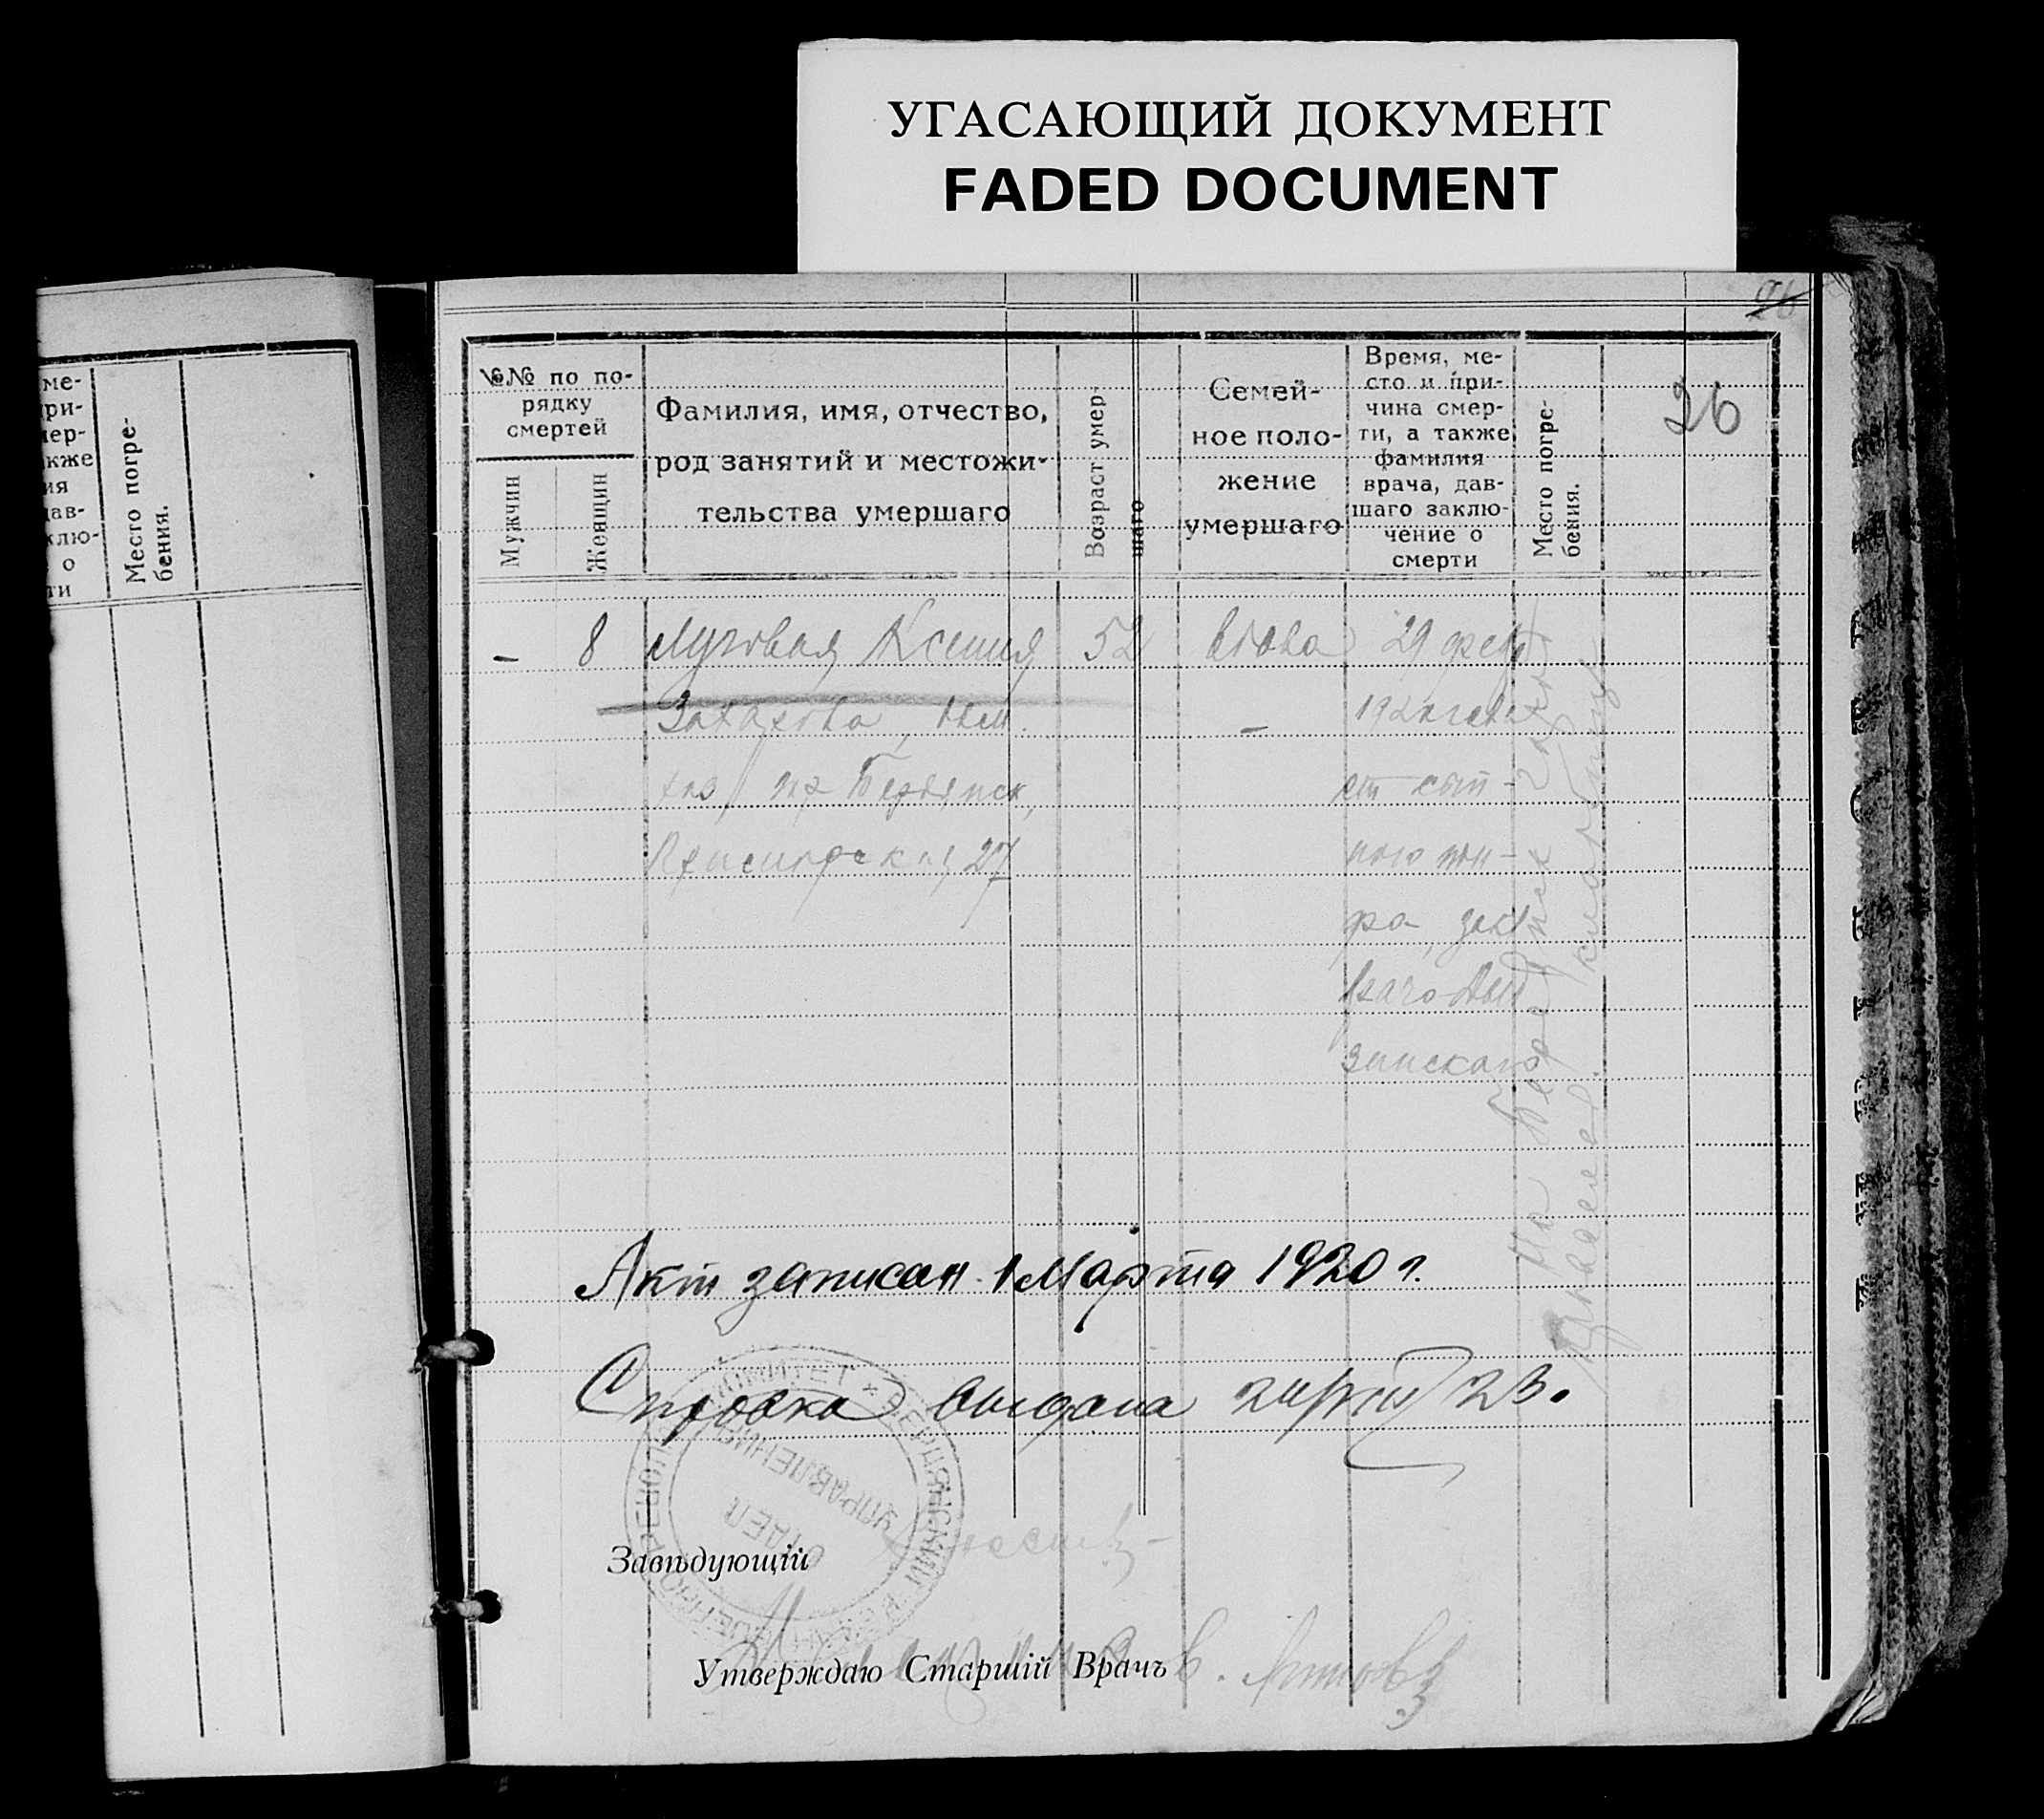 УГАСАЮЩИЙ ДОКУМЕНТ
FADED DOCUMENT
26
26
ме-
ри-
мер-
кже
ия
дав-
клю-
о
ти
Место погре-
бения.
№№ по по-
рядку
смертей
Мужчин
Женщин
Фамилия, имя, отчество,
род занятий и местожи-
тельства умершаго
Возраст умер-
шаго
Семей-
ное поло-
жение
умершаго
Время, ме-
сто и при-
чина смер-
ти, а также
фамилия
врача, дав-
шаго заклю-
чение о
смерти
Место погре-
бения.
–
8
Луговая Ксения
Захарова,
Бердянск,
27
52
вдова
–
29 февр
от сып-
ного ти-
фа, закл
врача
зинскаго
На Бердянск
кладбище
Акт записан 1 Марта 1920 г.
Справка выдана 23.
КОМИТЕТ × БЕРДЯНСКИЙ
ОТДЕЛ
УПРАВЛЕНИЯ
Завѣдующій
Утверждаю Старшій Врачъ